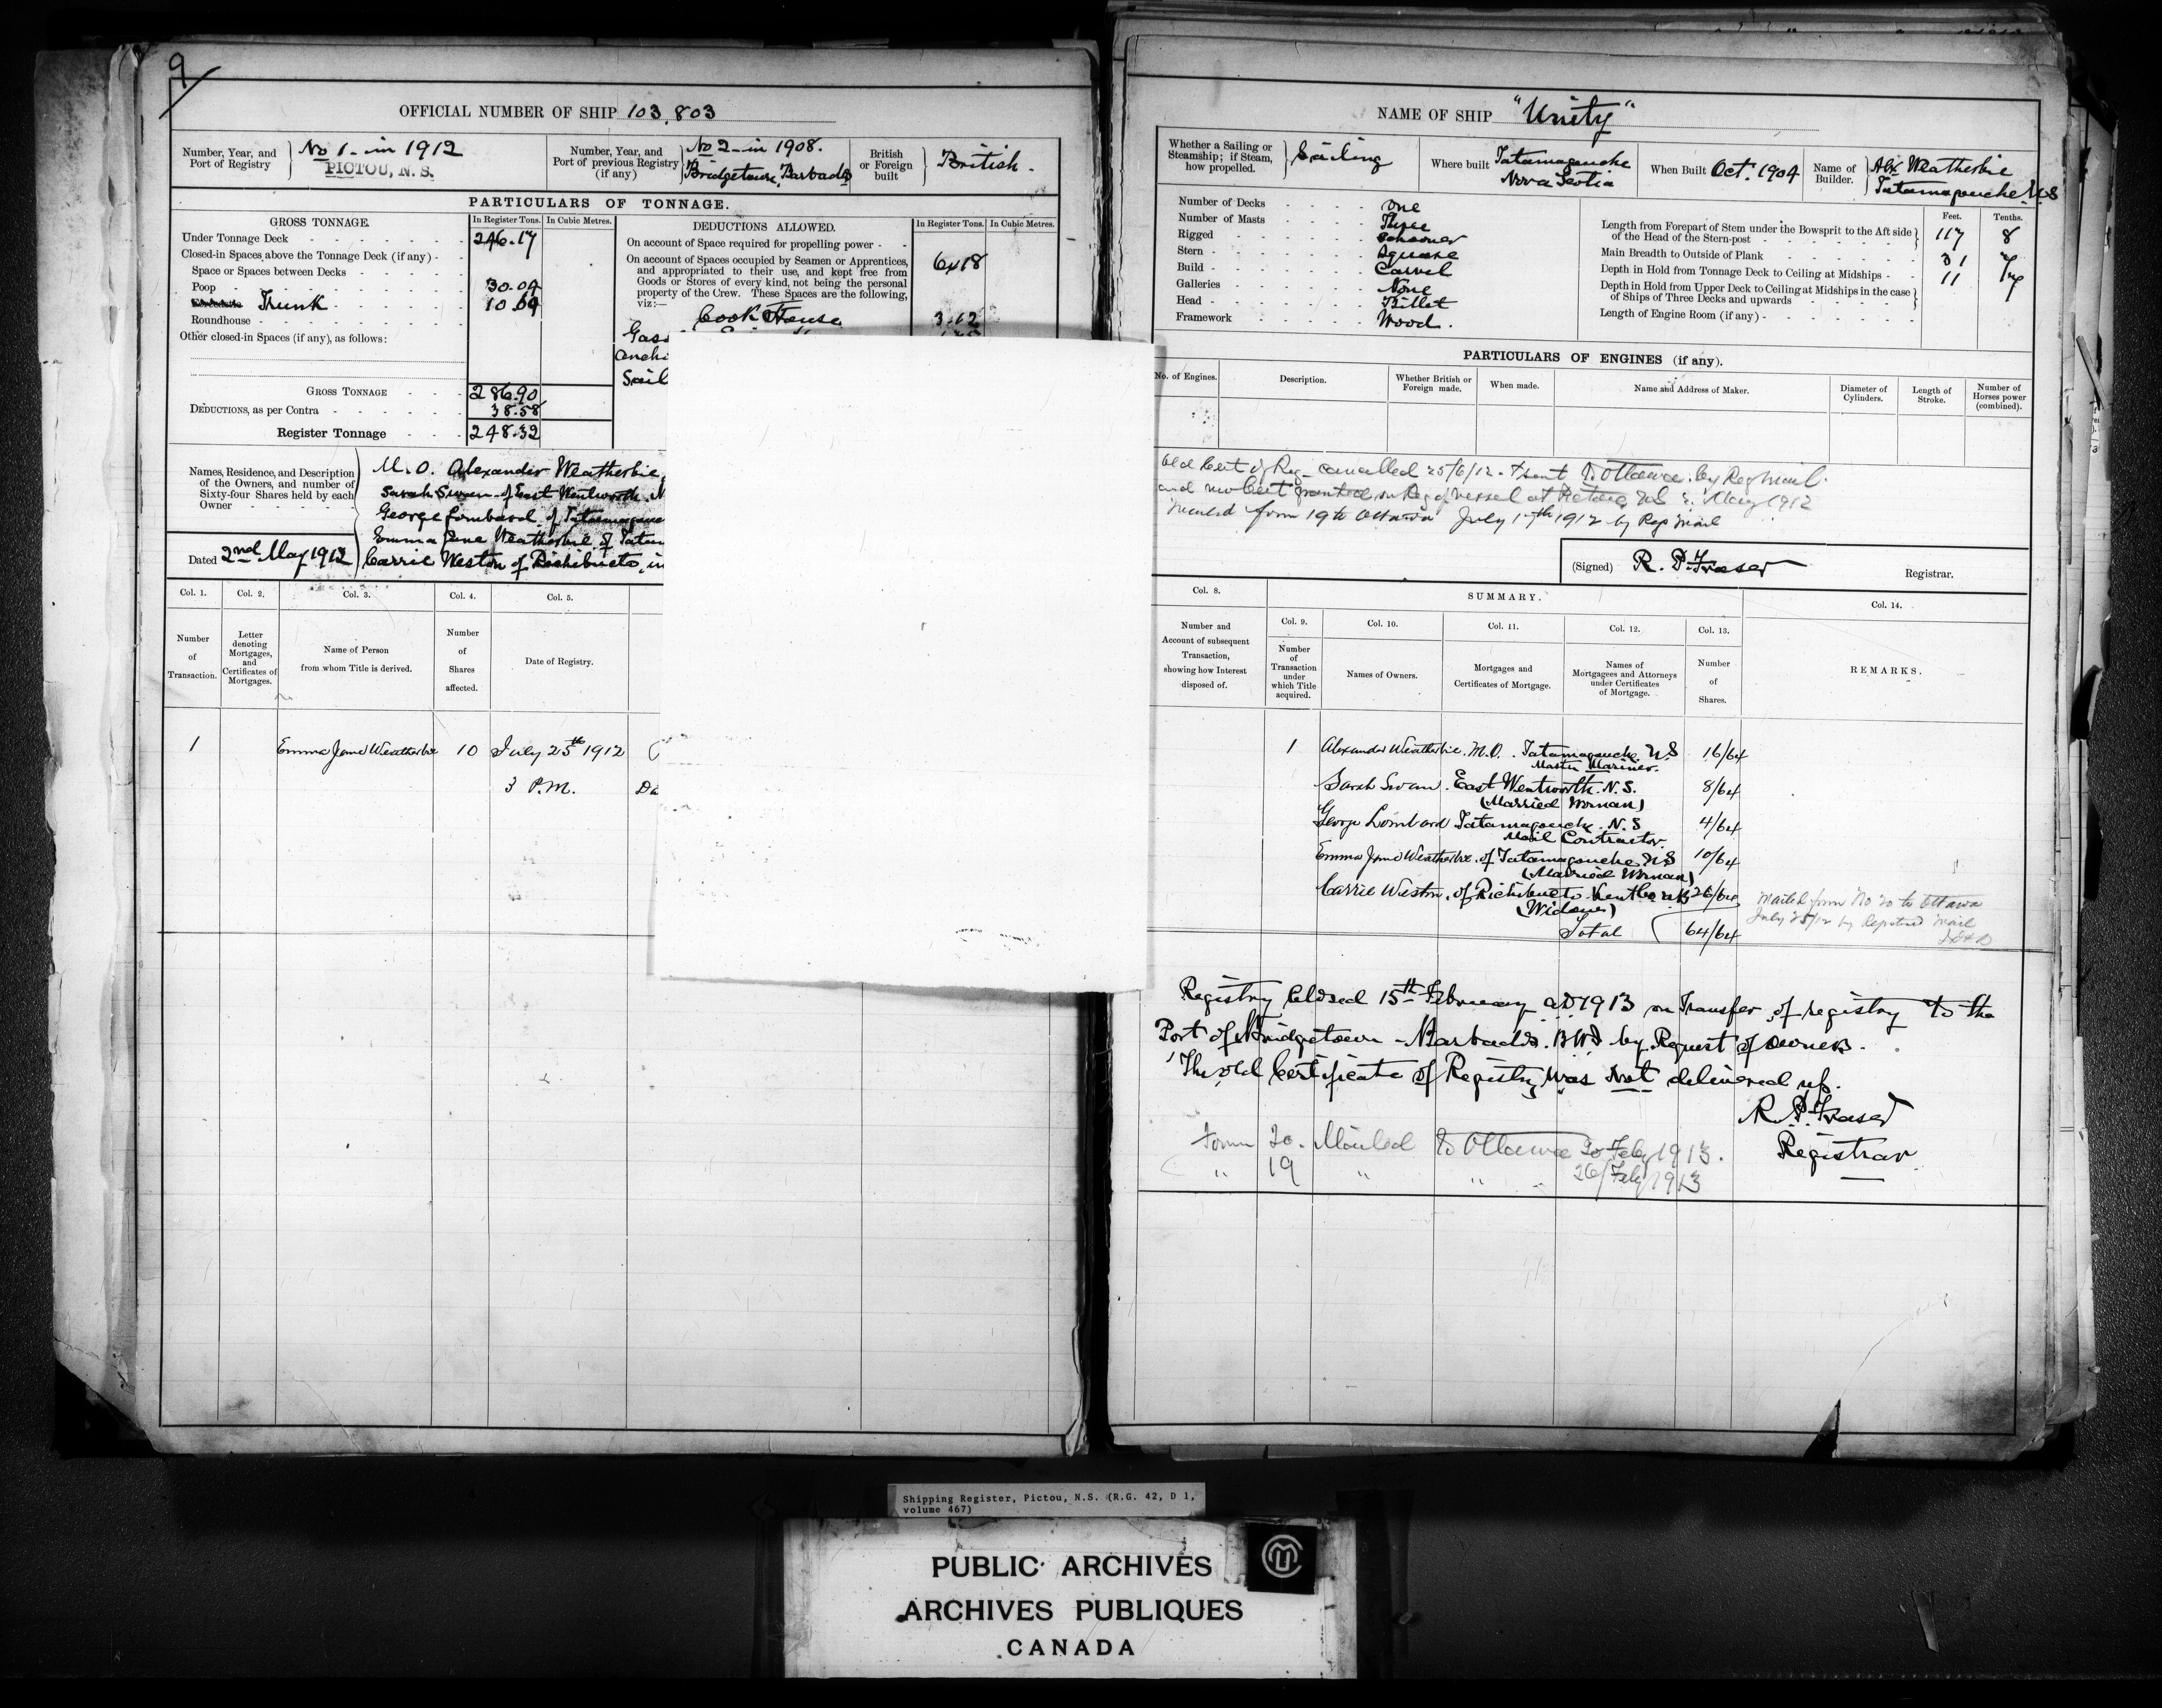 9
OFFICIAL NUMBER OF SHIP 103,803
Number, Year, and Port of Registry
No 1 - in 1912
PICTOU, N. S.
Number, Year, and Port of previous Registry (if any)
No 2 - in 1908.
Bridgetown, Barbados
British or Foreign built
British.
PARTICULARS OF TONNAGE.
GROSS TONNAGE.
In Register Tons.
In Cubic Metres.
Under Tonnage Deck 246.17
Closed-in Spaces above the Tonnage Deck (if any)
Space or Spaces between Decks
Poop 30.04
Trunk 10.69
Roundhouse
Other closed-in Spaces (if any), as follows:
GROSS TONNAGE 286.90
DEDUCTIONS, as per Contra 38.58
Register Tonnage 248.32
DEDUCTIONS ALLOWED.
In Register Tons.
In Cubic Metres.
On account of Space required for propelling power
On account of Spaces occupied by Seamen or Apprentices,
and appropriated to their use, and kept free from
Goods or Stores of every kind, not being the personal
property of the Crew. These Spaces are the following,
viz:—
Cook House 3.62
Names, Residence, and Description
of the Owners, and number of
Sixty-four Shares held by each
Owner
M.O. Alexander Weatherbie
Sarah Swan of East Wentworth
George Lombard of
Emma Jane Weatherbie of
Carrie Weston of Richibucto, in
Dated 2nd May 1912
Col. 1.
Col. 2.
Col. 3.
Col. 4.
Col. 5.
Number of Transaction.
Letter denoting Mortgages, and Certificates of Mortgages.
Name of Person from whom Title is derived.
Number of Shares affected.
Date of Registry.
1 Emma Jane Weatherbie 10 July 25th 1912
3 P.M.
NAME OF SHIP "Unity"
Whether a Sailing or Steamship; if Steam, how propelled.
Sailing
Where built
Tatamagouche
Nova Scotia
When Built Oct. 1904
Name of Builder.
Alex Weatherbie
Tatamagouche N S
Number of Decks One
Number of Masts Three
Rigged Schooner
Stern Square
Build Carvel
Galleries None
Head Billet
Framework Wood.
Feet.
Tenths.
Length from Forepart of Stem under the Bowsprit to the Aft side
of the Head of the Stern-post 117 8
Main Breadth to Outside of Plank 31 7
Depth in Hold from Tonnage Deck to Ceiling at Midships 11
Depth in Hold from Upper Deck to Ceiling at Midships in the case
of Ships of Three Decks and upwards
Length of Engine Room (if any)
PARTICULARS OF ENGINES (if any).
No. of Engines.
Description.
Whether British or Foreign made.
When made.
Name and Address of Maker.
Diameter of Cylinders.
Length of Stroke.
Number of Horses power (combined).
Old Cert of Reg cancelled 25/6/12 & sent to Ottawa by Reg Mail.
and new Cert granted on Reg of vessel at Pictou NS May 1912
form 19 to Ottawa July 17th 1912 by Reg Mail
(Signed) R. P. Fraser Registrar.
Col. 8.
Number and Account of subsequent Transaction, showing how Interest disposed of.
SUMMARY.
Col. 9.
Col. 10.
Col. 11.
Col. 12.
Col. 13.
Col. 14.
Number of Transaction under which Title acquired.
Names of Owners.
Mortgages and Certificates of Mortgage.
Names of Mortgagees and Attorneys under Certificates of Mortgage.
Number of Shares.
REMARKS.
1 Alexander Weatherbie. M.O. Tatamagouche NS 16/64
Master Mariner.
Sarah Swan. East Wentworth. N. S. 8/64
(Married Woman)
George Lombard Tatamagouche N S 4/64
Mail Contractor.
Emma Jane Weatherbie of Tatamagouche NS 10/64
(Married Woman)
Carrie Weston, of Richibucto Kent Co NB 26/64
(Widow)
Total 64/64
Mailed form No 20 to Ottawa
July 25/12 by Registered Mail
Registry Closed 15th February AD 1913 on Transfer of registry to the
Port of Bridgetown - Barbados. BWI by Request of Owners.
The old Certificate of Registry was not delivered up.
R. P. Fraser
Registrar
Form 20. Mailed to Ottawa 20 Feby 1913.
" 19 " " 26/Feby 1913
Shipping Register, Pictou, N.S. (R.G. 42, D 1,
volume 467)
PUBLIC ARCHIVES
ARCHIVES PUBLIQUES
CANADA